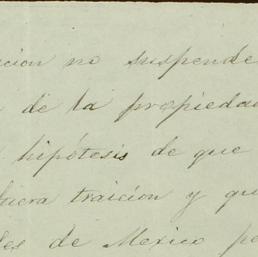 cion no suspende
de la propiedad
hipótesis de que
fuera traicion y qu
les de Mexico po